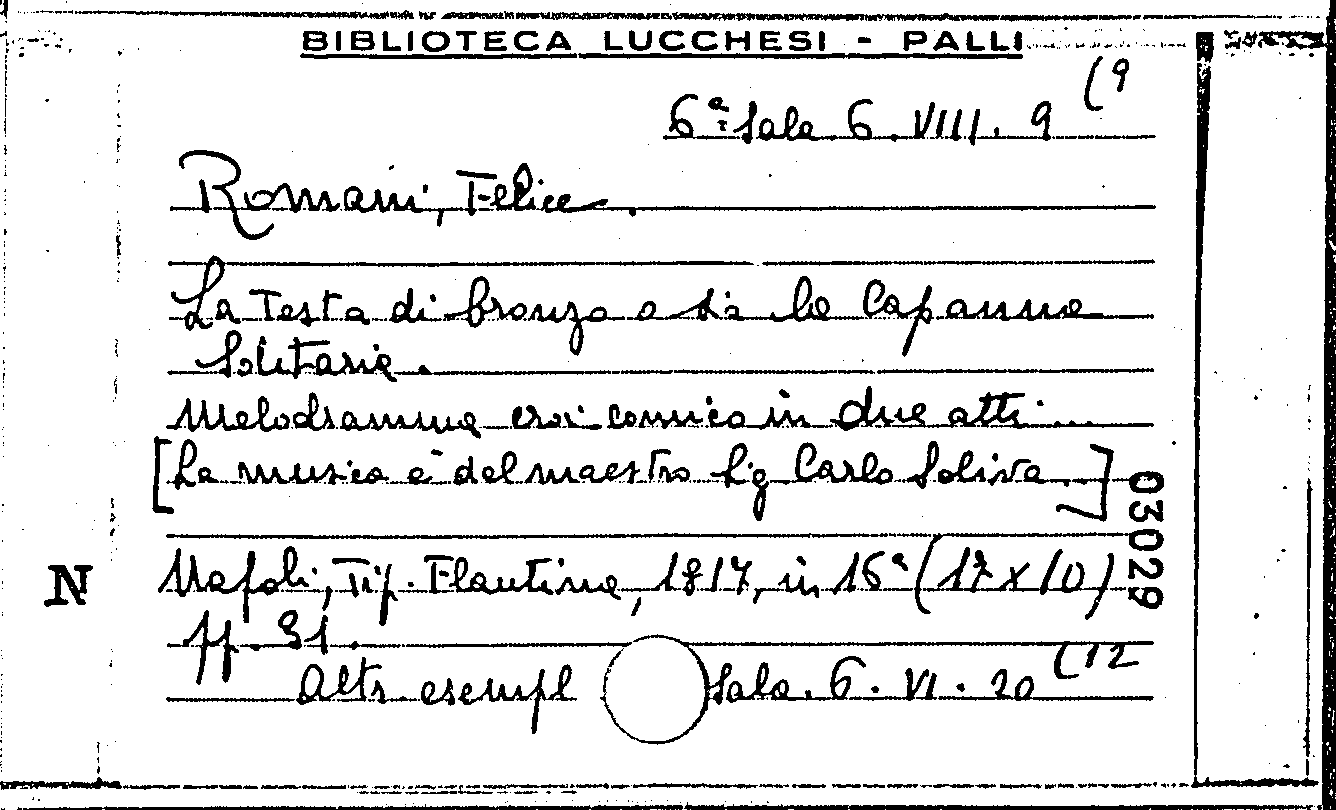 BIBLIOTECA LUCCHESI - PALLI
6ª Sala. 6. VIII. 9 (9
Romani, Felice.
La Testa di bronzo o sia la Capanna
Solitaria.
Melodramma eroi-comico in due atti...
[La musica è del maestro Sig Carlo Soliva.]
03029
N
Napoli, Tip. Flautina, 1817, in 16° (17 x 10)
pp. 31.
Altr. esempl Sala. 6. VI. 20 (12